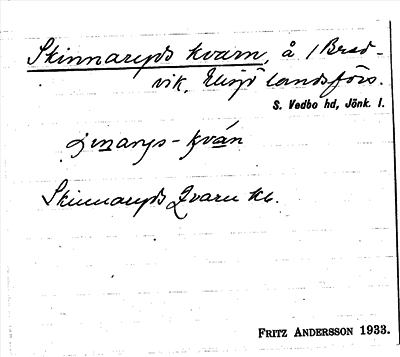 Skinnaryds kvarn, å / Bred-
vik, Eksjö landsförs.
S. Vedbo hd, Jönk. l.
kván
Skinnaryds Qvarn Kb.
FRITZ ANDERSSON 1933.